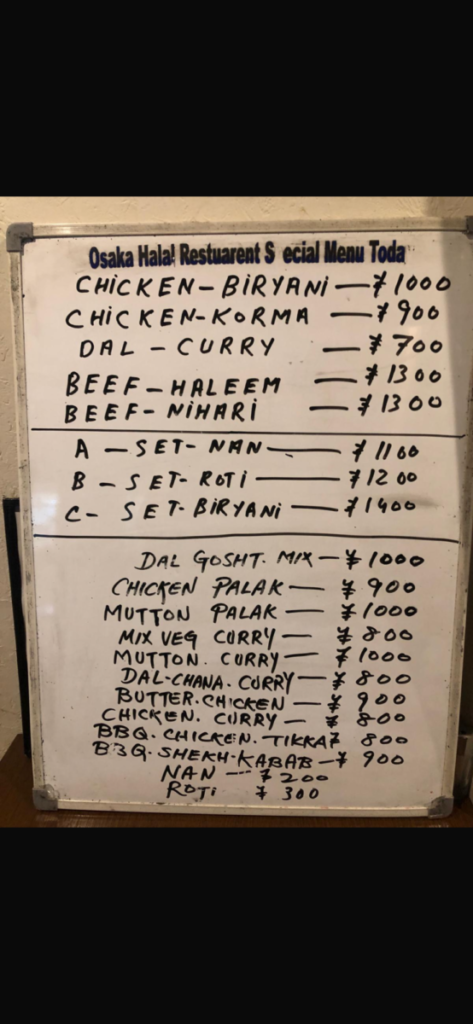 Osaka Halal Restuarent S ecial Menu Toda
CHICKEN-BIRYANI — ¥1000
CHICKEN-KORMA — ¥900
DAL - CURRY — ¥700
BEEF - HALEEM — ¥1300
BEEF - NIHARI — ¥1300
A - SET - NAN — ¥1100
B - SET - ROTI — ¥1200
C - SET - BIRYANI — ¥1400
DAL GOSHT. MIX — ¥1000
CHICKEN PALAK — ¥900
MUTTON PALAK — ¥1000
MIX VEG CURRY — ¥800
MUTTON. CURRY — ¥1000
DAL-CHANA. CURRY — ¥800
BUTTER. CHICKEN — ¥900
CHICKEN. CURRY — ¥800
BBQ. CHICKEN. TIKKA ¥800
BBQ. SHEKH-KABAB — ¥900
NAN --- ¥200
ROTI ¥300